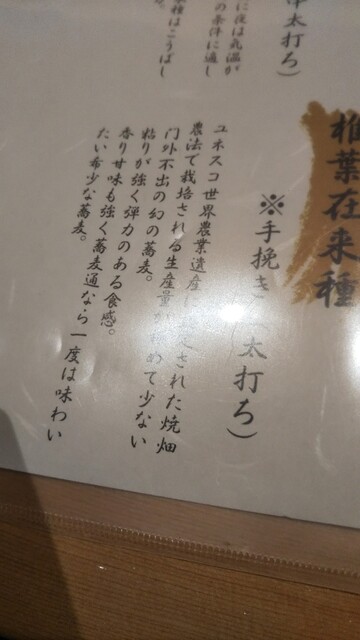 椎葉在来種
※手挽き 太打ち）
ユネスコ世界農業遺産 定された焼畑
農法で栽培される生産量 めて少ない
門外不出の幻の蕎麦。
粘りが強く弾力のある食感。
香り甘味も強く蕎麦通なら一度は味わい
たい希少な蕎麦。
太打ち）
に夜は気温が
の条件に適し
種はこうばし